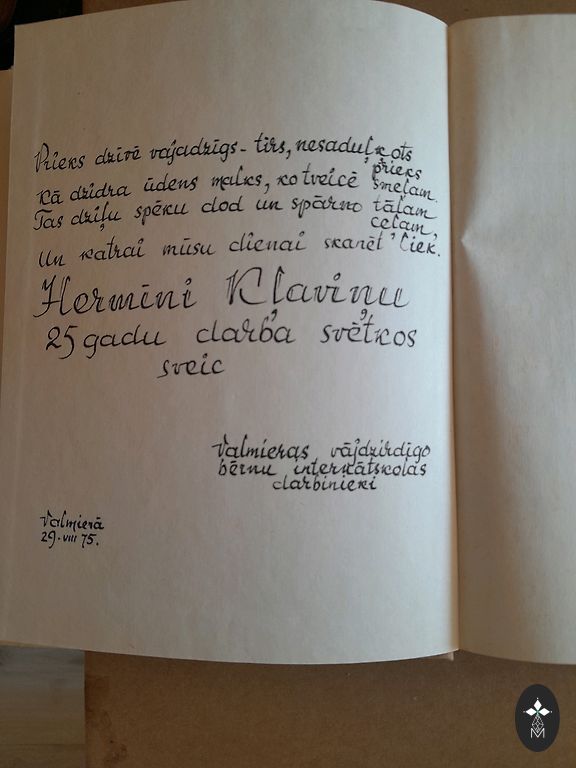 Prieks dzīvē vajadzīgs - tīrs, nesaduļķots prieks
Kā dzidra ūdens malks, ko tveicē smeļam.
Tas dziļu spēku dod un spārno tālam ceļam,
Un katrai mūsu dienai skanēt liek.
Hermīni Kļaviņu
25 gadu darba svētkos
sveic
Valmieras vājdzirdīgo
bērnu internātskolas
darbinieki
Valmierā
29. VIII 75.
M